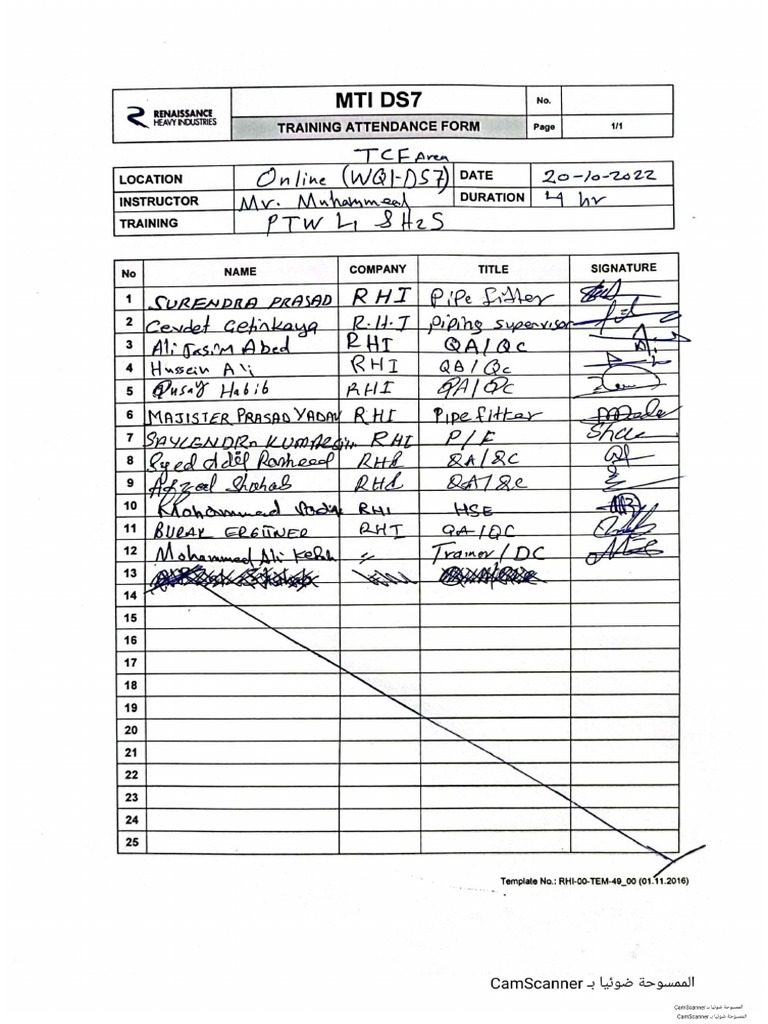 RENAISSANCE
HEAVY INDUSTRIES
MTI DS7
No.
TRAINING ATTENDANCE FORM
Page 1/1
TCF Area
LOCATION Online (WQ1-DS7) DATE 20-10-2022
INSTRUCTOR Mr. Muhammed DURATION 4 hr
TRAINING PTW L1 & H2S
No NAME COMPANY TITLE SIGNATURE
1 SURENDRA PRASAD RHI Pipe fitter
2 Cevdet Cetinkaya R.H.I piping supervisor
3 Ali Jasim Abed RHI QA/QC Ali
4 Hussein Ali RHI QA/QC
5 Qusay Habib RHI QA/QC
6 MAJISTER PRASAD YADAV RHI Pipe fitter
7 SAYLENDRA KUMAR RHI P/F
8 Syed Adeel Rasheed RHI QA/QC
9 Afzaal Shahab RHI QA/QC
10 Mohammed RHI HSE
11 BURAK ERGÜNER RHI QA/QC
12 Mohammed Ali 〃 Trainer/DC
13
14
15
16
17
18
19
20
21
22
23
24
25
Template No.: RHI-00-TEM-49_00 (01.11.2016)
الممسوحة ضوئيا بـ CamScanner
الممسوحة ضوئيا بـ CamScanner
الممسوحة ضوئيا بـ CamScanner